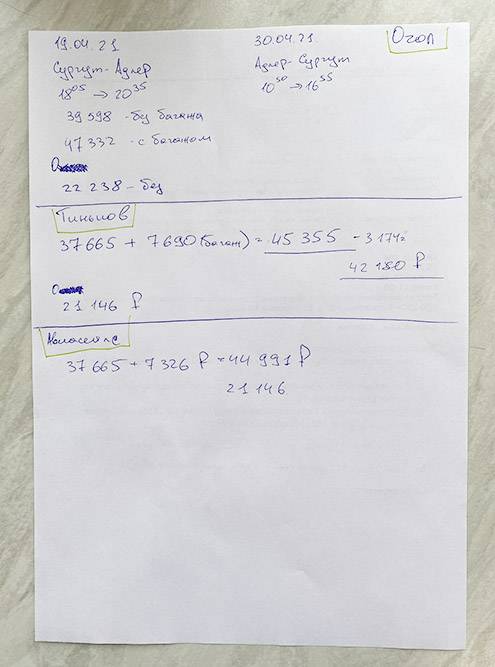 19.04.21
Сургут-Адлер
18⁰⁵ → 20³⁵
39 598 - без багажа
47 332 - с багажом
22 238 - без
30.04.21
Адлер-Сургут
10⁵⁰ → 16⁵⁵
Озон
Тиньков
37 665 + 7 690 (багаж) = 45 355 - 3 174
42 180 ₽
21 146 ₽
Авиасейлс
37 665 + 7 326 ₽ = 44 991 ₽
21 146